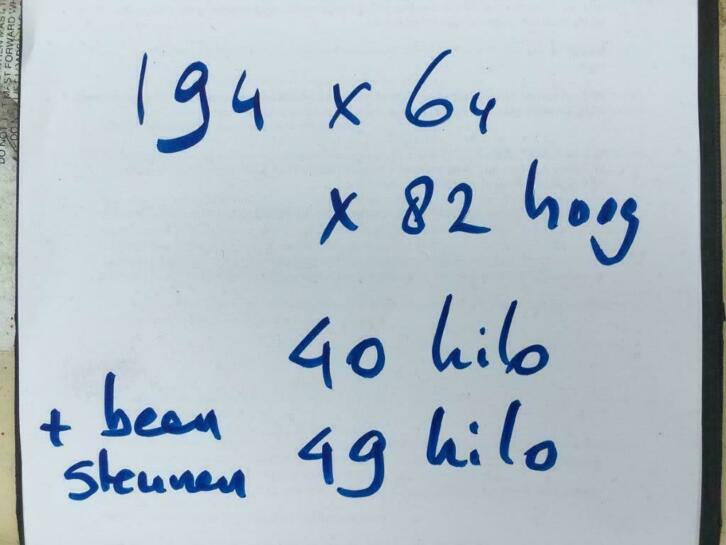 194 x 64
x 82 hoog
40 kilo
+ been
steunen 49 kilo